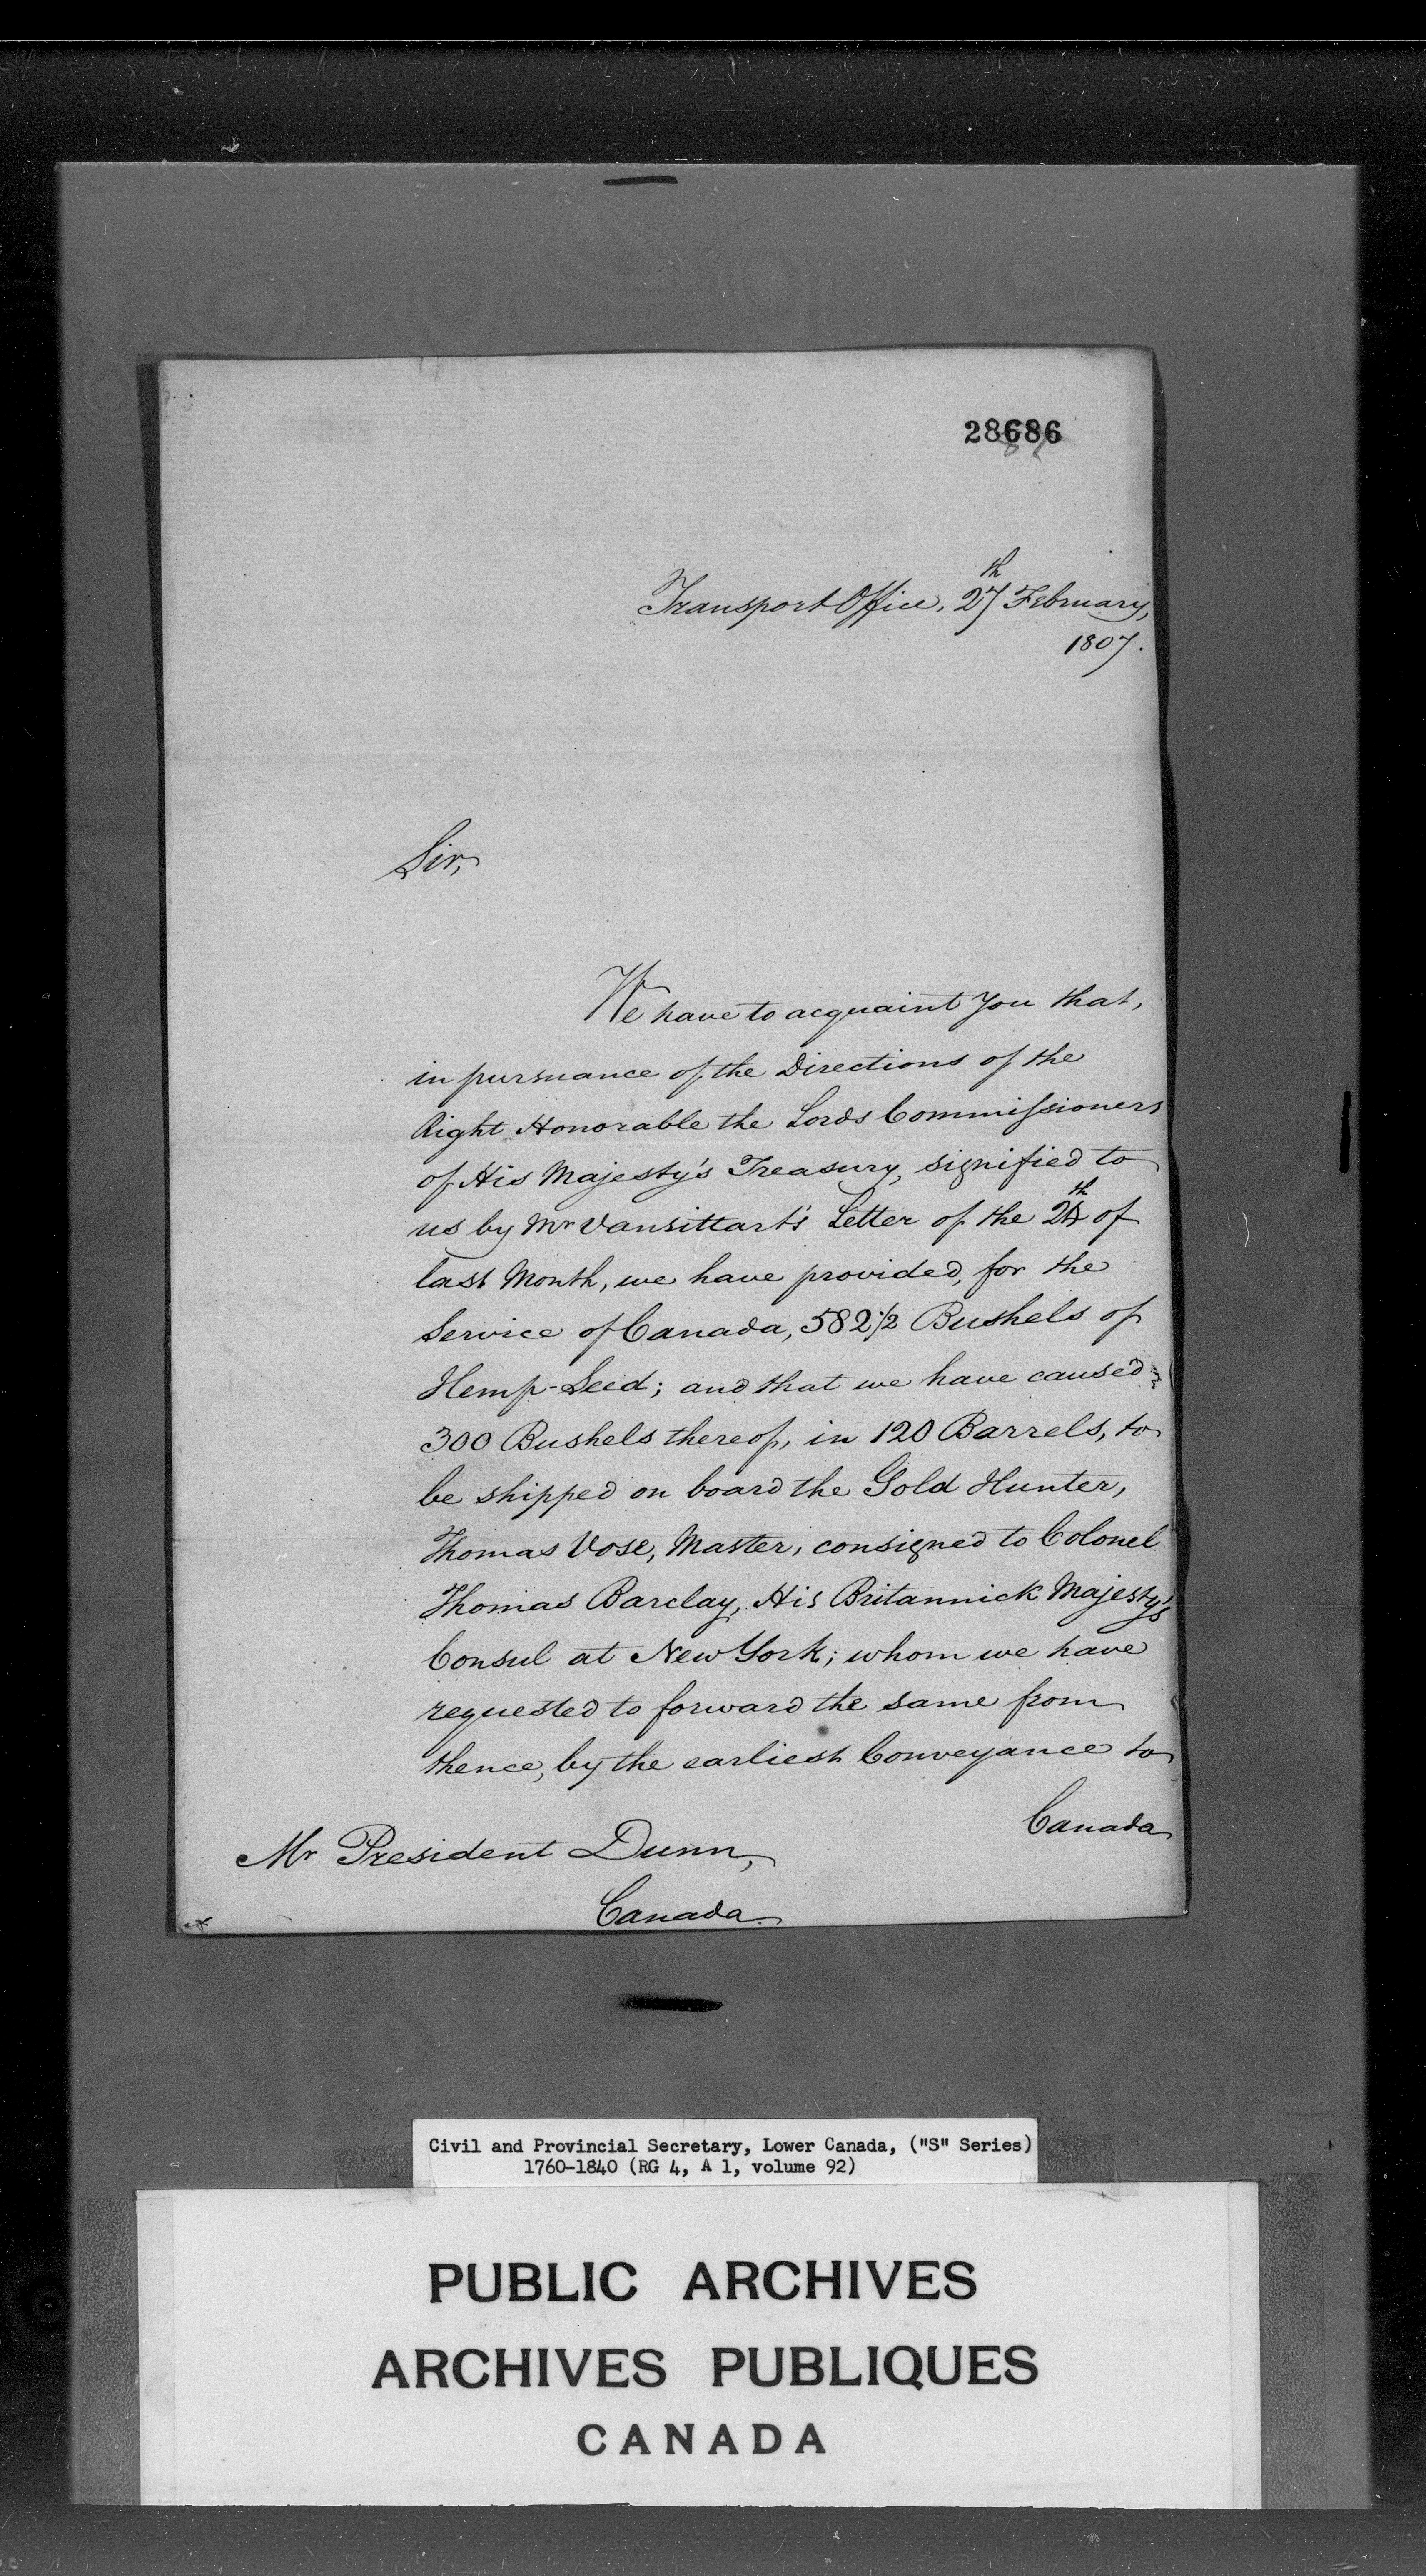 28686
Transport Office, 27th February,
1807.
Sir,
We have to acquaint You that,
in pursuance of the Directions of the
Right Honorable the Lords Commissioners
of His Majesty's Treasury, signified to
us by Mr Vansittart's Letter of the of
last Month, we have provided, for the
Service of Canada, 582 1/2 Bushels of
Hemp-Seed; and that we have caused
300 Bushels thereof, in 120 Barrels, to
be shipped on board the Gold Hunter,
Thomas Vose, Master, consigned to Colonel
Thomas Barclay, His Britannick Majesty's
Consul at New York; whom we have
requested to forward the same from
thence, by the earliest Conveyance to
Canada
Mr President Dunn,
Canada.
Civil and Provincial Secretary, Lower Canada, ("S" Series)
1760-1840 (RG 4, A 1, volume 92)
PUBLIC ARCHIVES
ARCHIVES PUBLIQUES
CANADA